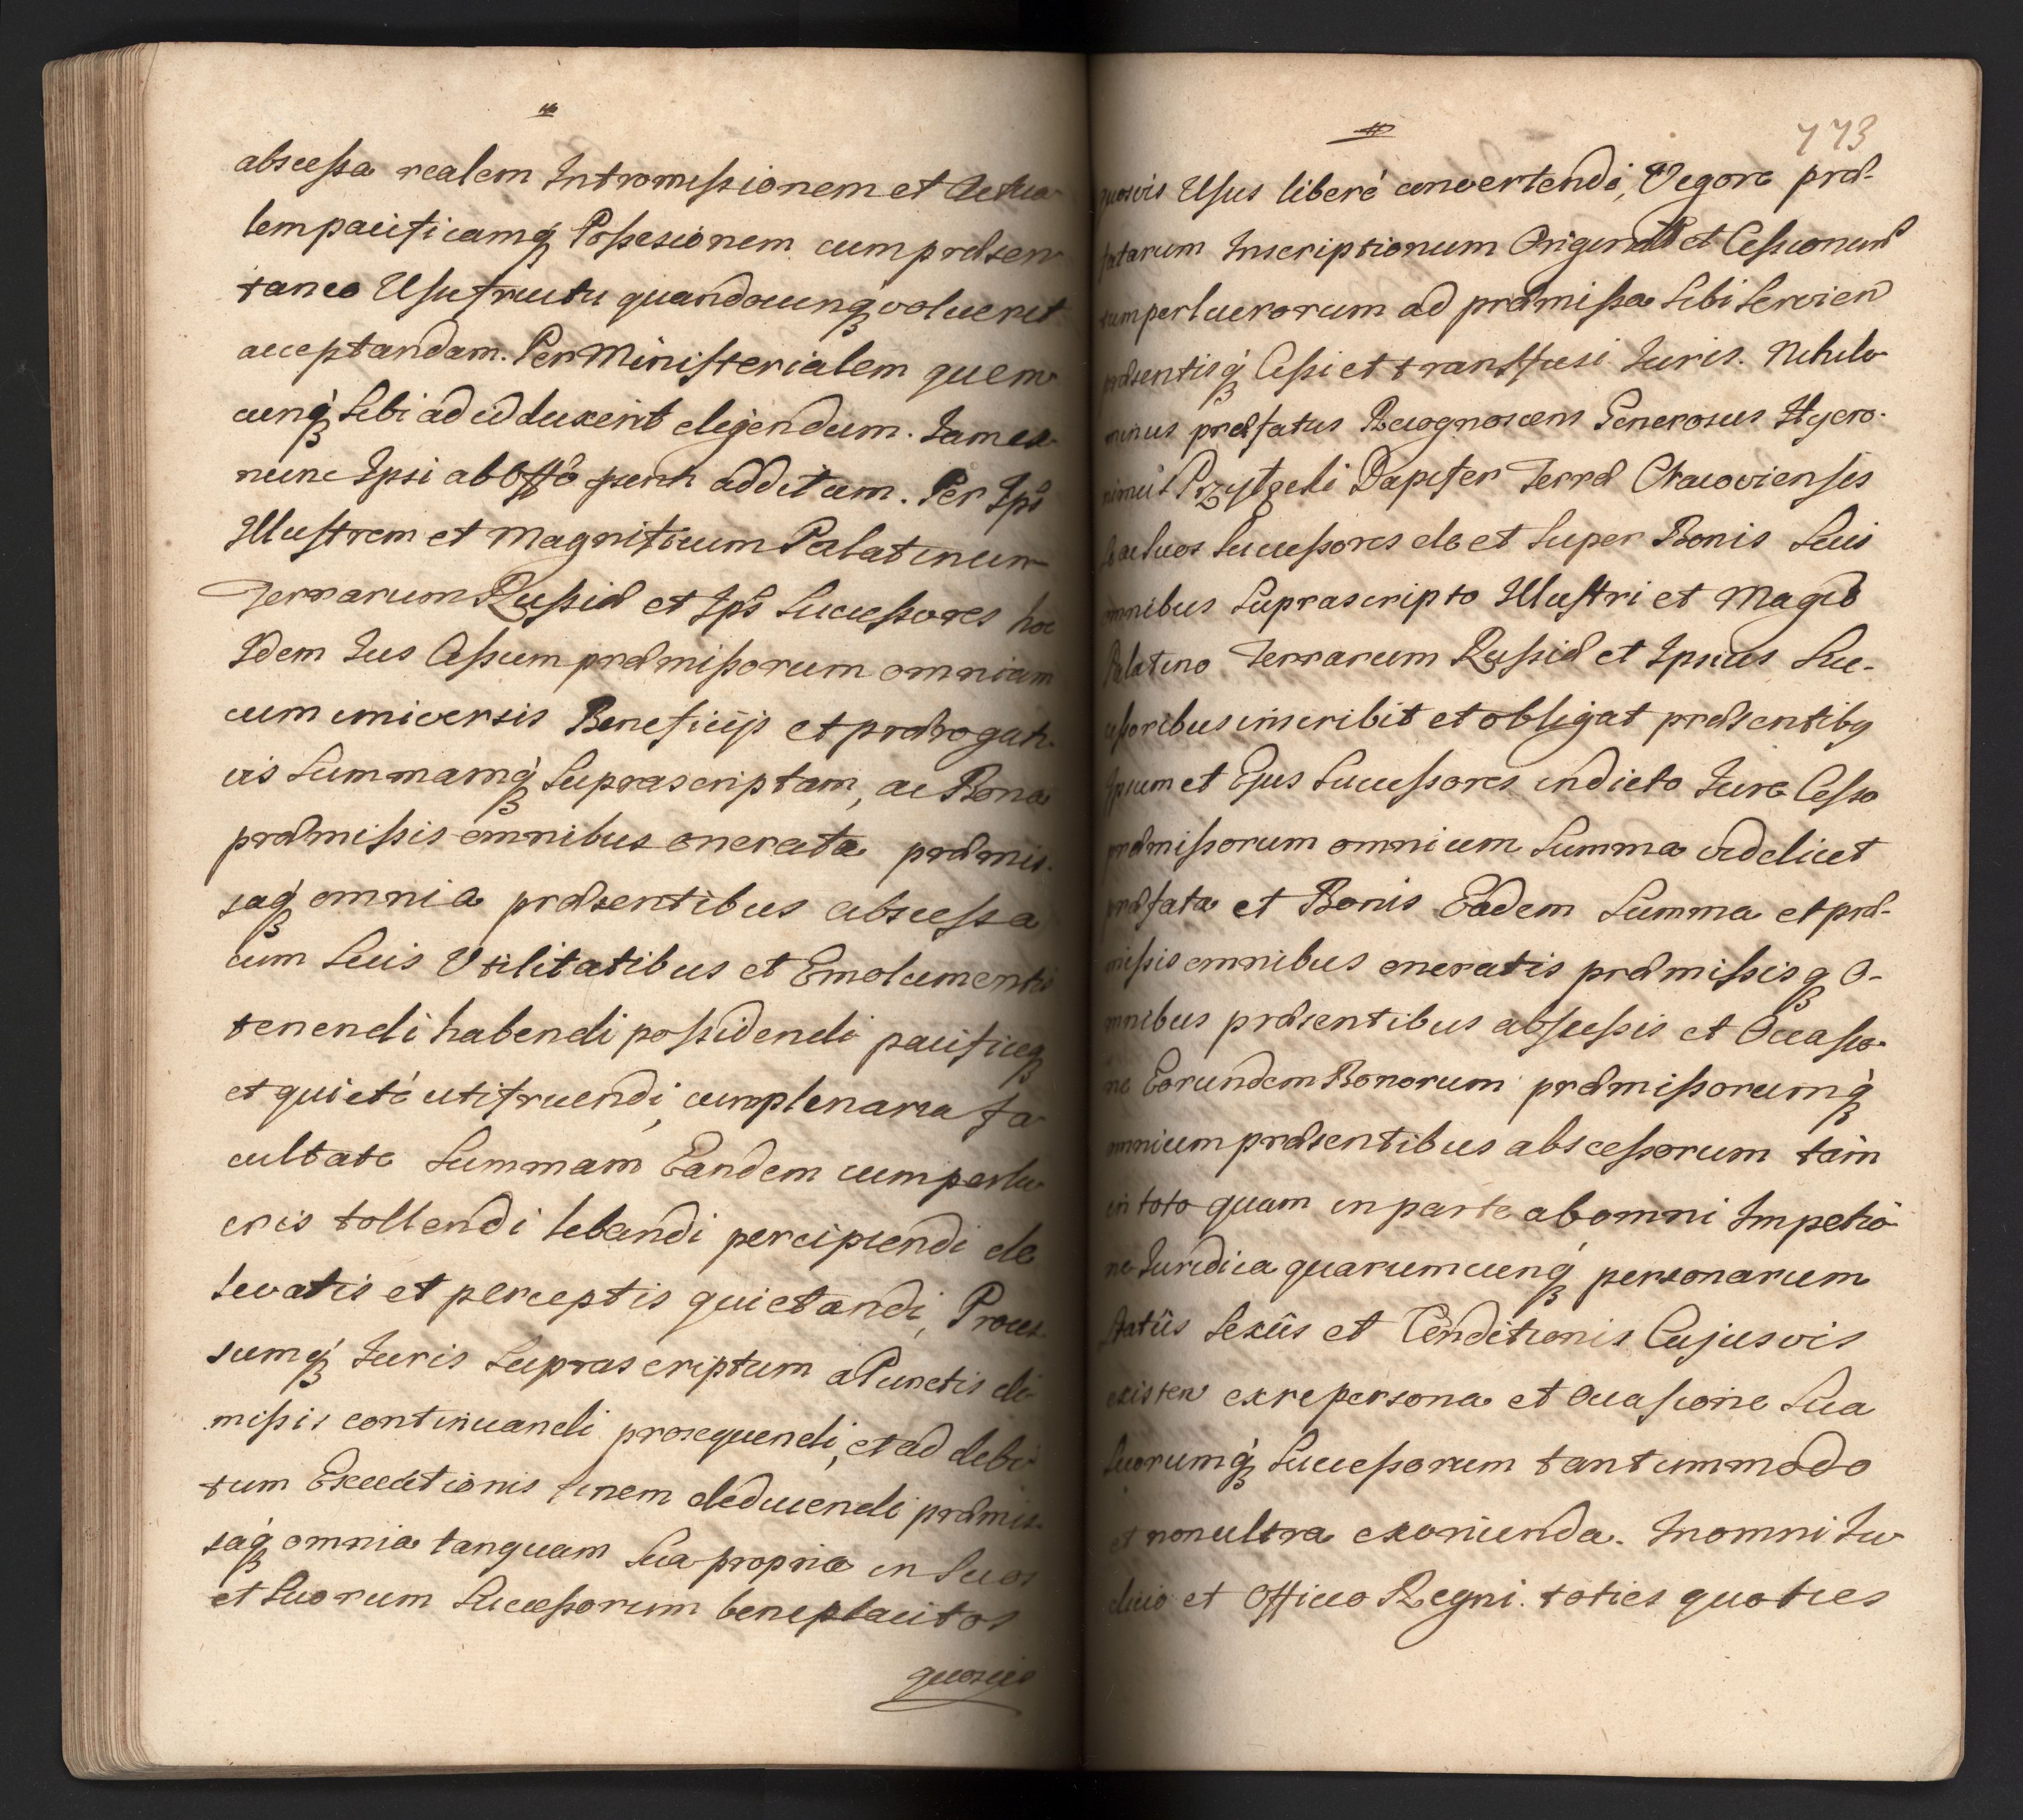 abscessa realem Intromissionem et Actua
lem pacificamq́ Possesionem cum præsen
taneo Usufructu quandocunq́ voluerit
acceptandam. Per Ministerialem quem
cunq́ Sibi ad id duxerit eligendum. Jam ex
nunc Ipsi ab Offo psenti additum. Per Ips
Illustrem et Magnificum Palatinum
Terrarum Russiæ et Ips Successores hoc
Idem Jus Cessum præmissorum omnium
cum universis Beneficijs et prærogati
vis Summamq́ Suprascriptam, ac Bona
præmissis omnibus onerata præmis
saq́ omnia præsentibus abscessa
cum Suis Utilitatibus et Emolumentis
tenendi habendi possidendi pacificeq
et quieté utifruendi, cum plenaria fa
cultate Summam Eandem cum perlu
cris tollendi lebandi percipiendi de
levatis et perceptis quietandi, Proces
sumq́ Juris Suprascriptum a Punctis di
missis continuandi prosequendi, et ad debi
tum Executionis finem deducendi præmis
saq́ omnia tanquam Sua propria in Suos
et Suorum Successorum beneplacitos
quosvis
773
quosvis Usus liberé convertendi, Vigore præ-
fatarum Inscriptionum Originali et Cessionum
cum perlucrorum ad præmissa Sibi Servien
præsentisq́ Cessi et transfusi Juris. Nihilo
minus præfatus Recognoscens Generosus Hyero-
nimus Przyłęcki Dapifer Terræ Cracoviensis
Se ac Suos Successores de et Super Bonis Suis
omnibus Suprascripto Illustri et Magco
Palatino Terrarum Russiæ et Ipsius Suc-
cessoribus inscribit et obligat præsentibq
Ipsum et Ejus Successores in dicto Jure Cesso
præmissorum omnium Summa videlicet
præfata et Bonis Eadem Summa et præ-
missis omnibus oneratis præmissisq O-
mnibus præsentibus abscessis et Occasio-
ne Eorundem Bonorum præmissorumq́
omnium præsentibus abscessorum tam
in toto quam in parte ab omni Impetio
ne Juridica quarumcunq́ personarum
Statûs Sexûs et Conditionis Cujusvis
existen ex re persona et occasione Sua
Suorumq́ Successorum tantummodo
et non ultra exoriunda. In omni Ju
dicio et Officio Regni. toties quoties